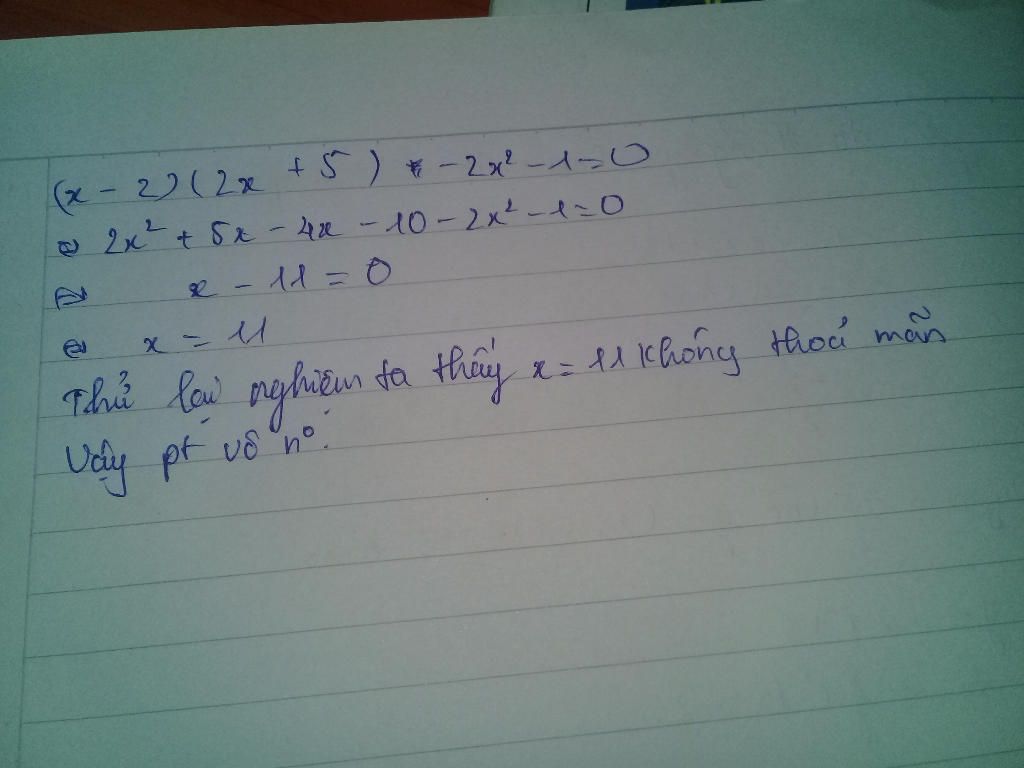 (x - 2)(2x + 5) - 2x² - 1 = 0
⇔ 2x² + 5x - 4x - 10 - 2x² - 1 = 0
⇔ x - 11 = 0
⇔ x = 11
Thử lại nghiệm ta thấy x = 11 không thoả mãn
Vậy pt vô n⁰.